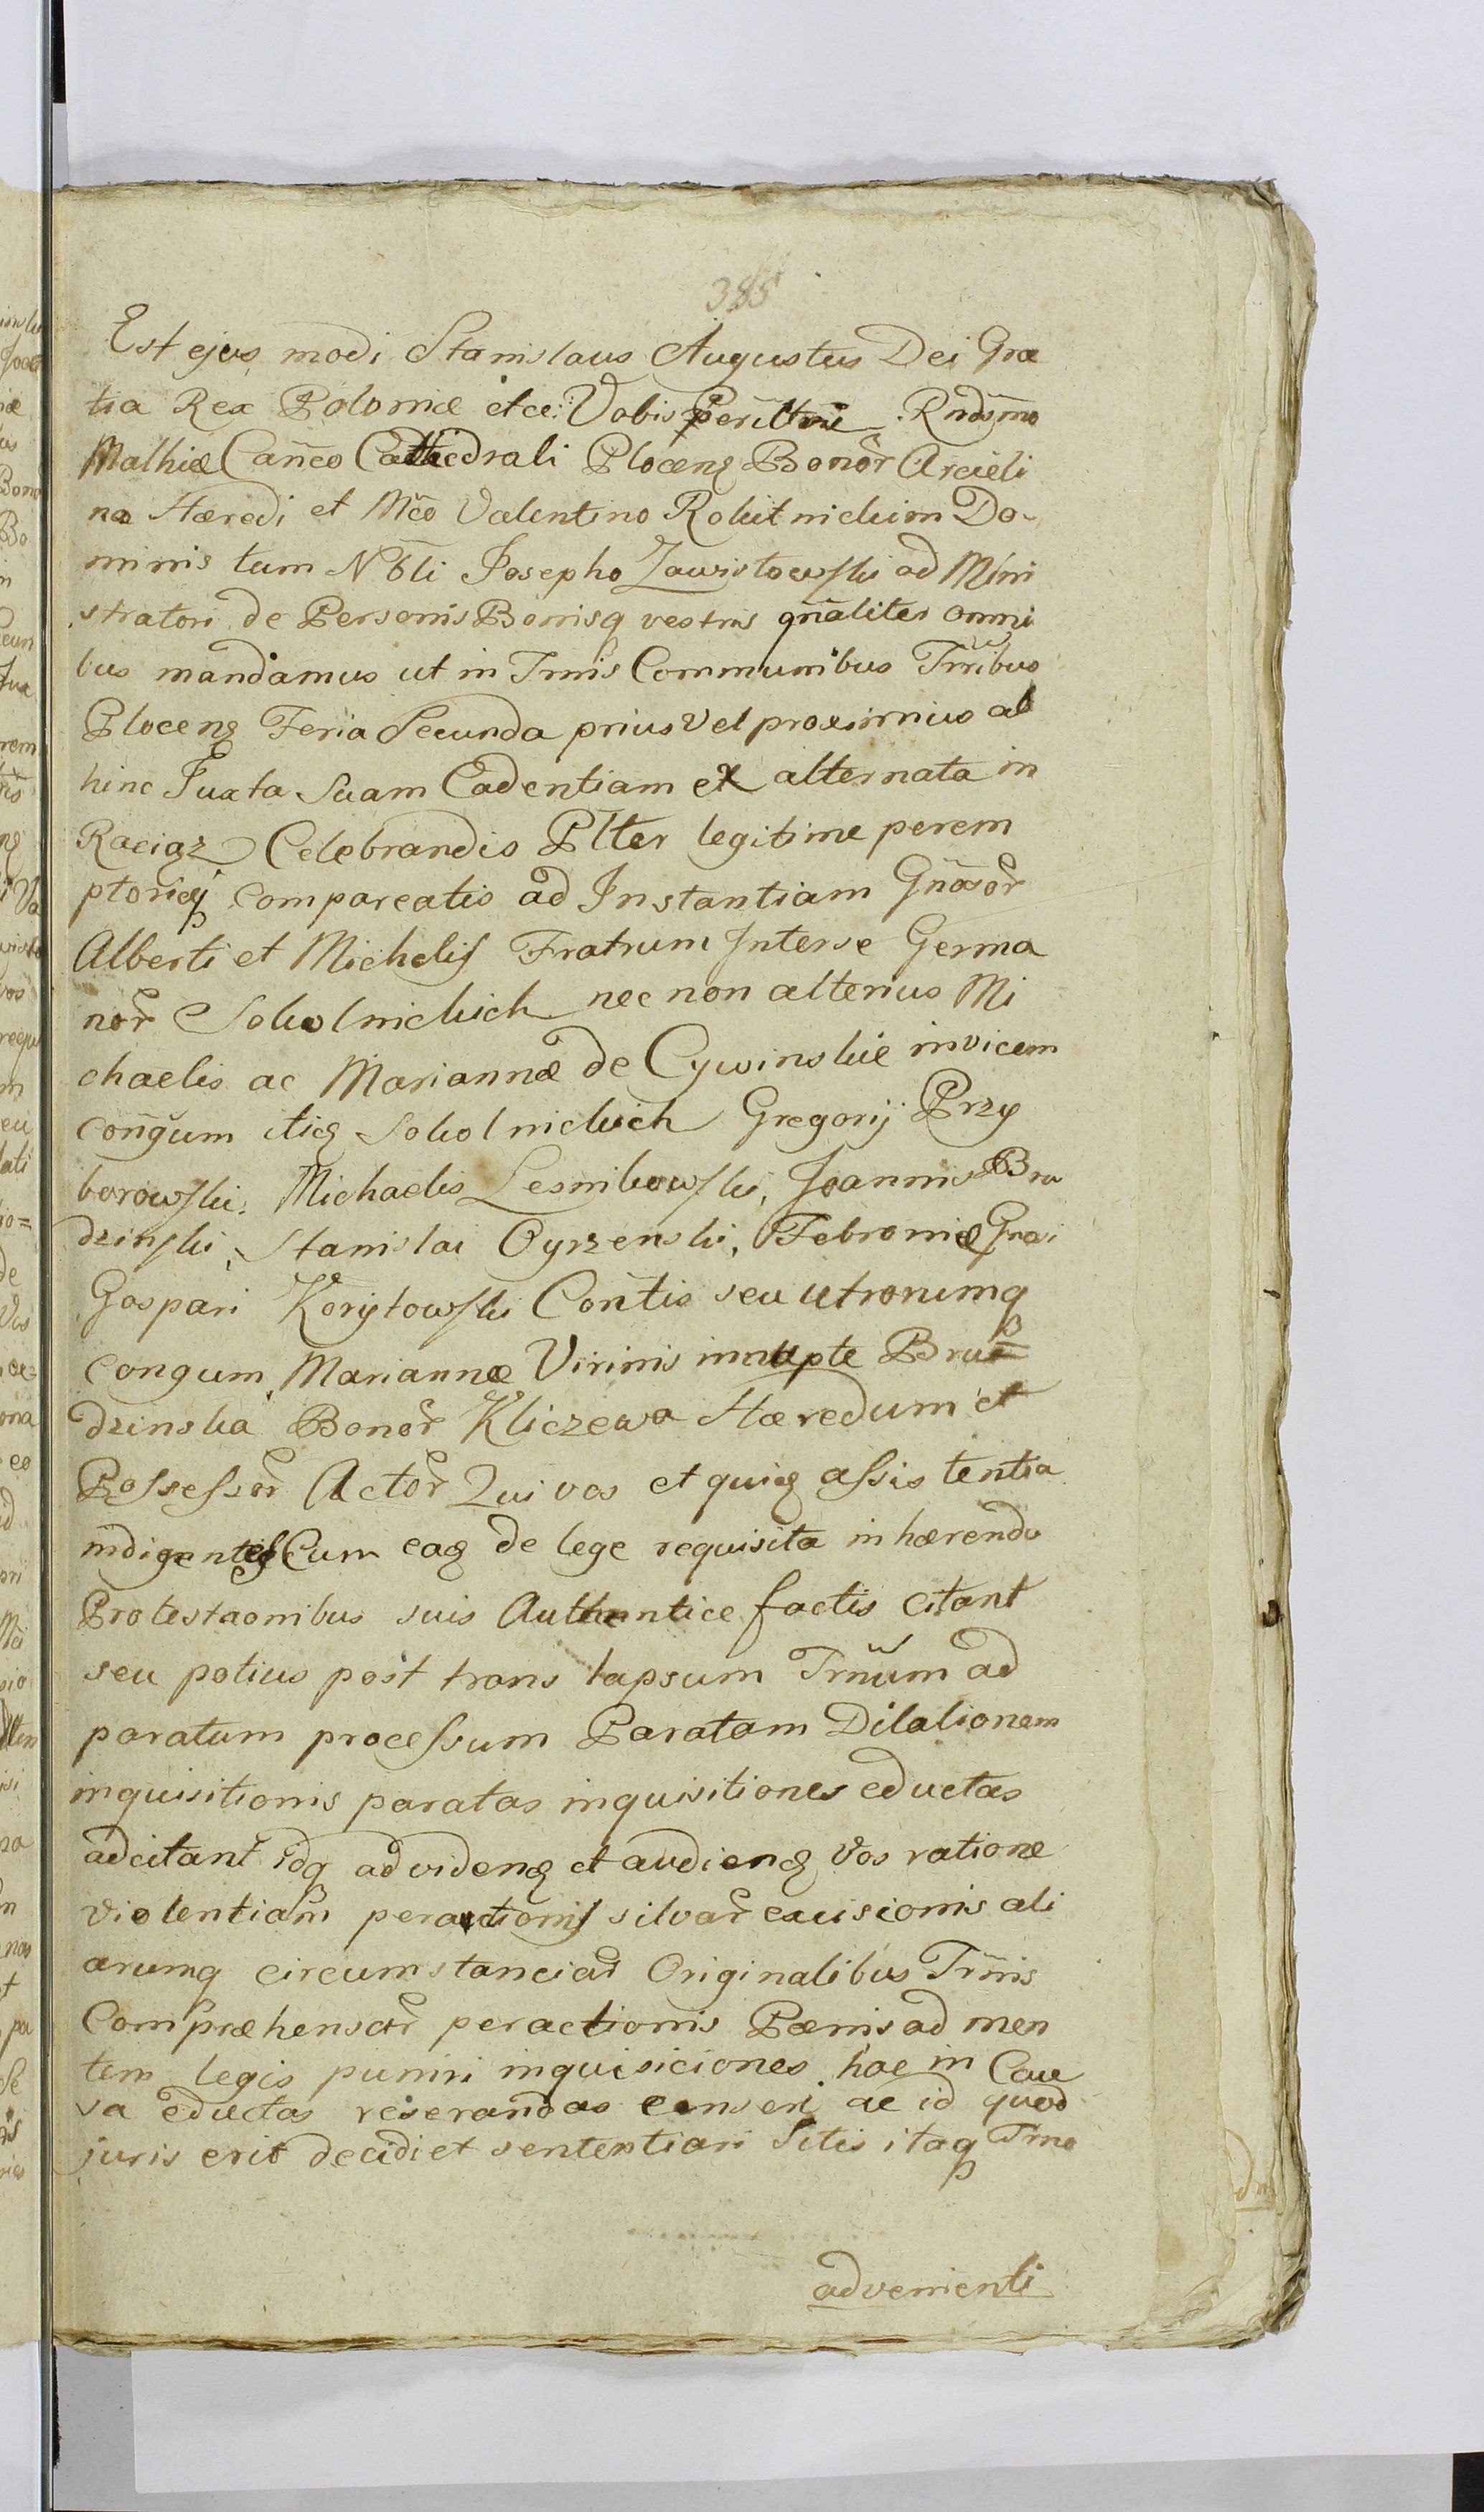 385
Est ejus modi Stanislaus Augustus Dei Gra
tia Rex Poloniæ etce: Vobis Perilltri Rndsmo
Mathiæ Cañco Cathedrali Plocenς Bonor̃ Arcieli
na Hæredi et Mc̃o Valentino Rokitnickim Do-
minis tum Nb̃li Josepho Zawistowski ad Mini
stratori de Personis Bonisq vestris gñaliter omni
bus mandamus ut in Tmis Communibus Tmibus
Plocenς Feria Secunda prius Vel proximius ab
hinc Juxta Suam Cadentiam ex alternata in
Raciąz Celebrandis Plter legitime perem
ptorieq compareatis ad Instantiam Gñosor̃
Alberti et Michelis Fratrum Interse Germa
nor̃ Sokolnickich nec non alterius Mi
chaelis ac Mariannæ de Cywinskie invicem
coñgum itieς Sokolnickich Gregorij Przy
borowski, Michaelis Lesnikowski, Joannis Bru
dzinski, Stanislai Oyrzenski, Febroniæ Gnosi
Gaspari Korytowski Coñtis seu utronumq
congum, Mariannæ Virinis innupte Bru=
dzinska Bonor̃ Kliczewo Hæredum et
Possessor̃ Actor̃ Qui vos et quieς assis tentia
indigentes Cum eaς de lege requisita inhærendo
Protestaonibus suis Authentice factis citant
seu potius post trans lapsum Tmũm ad
paratum processum Paratam Dilationem
inquisitionis paratas inquisitiones eductas
adcitant idq ad videnς et audienς Vos ratione
violentiam peractionis silvar̃ excisionis ali
arumq circumstanciar̃ Originalibus Tmis
Compræhensor̃ peractionis Pænis ad men
tem legis puniri inquisiciones hac in Cau
sa eductas reserandas censeri ac id quod
juris erit decidi et sententiari Sitis itaq Tmo
advenienti